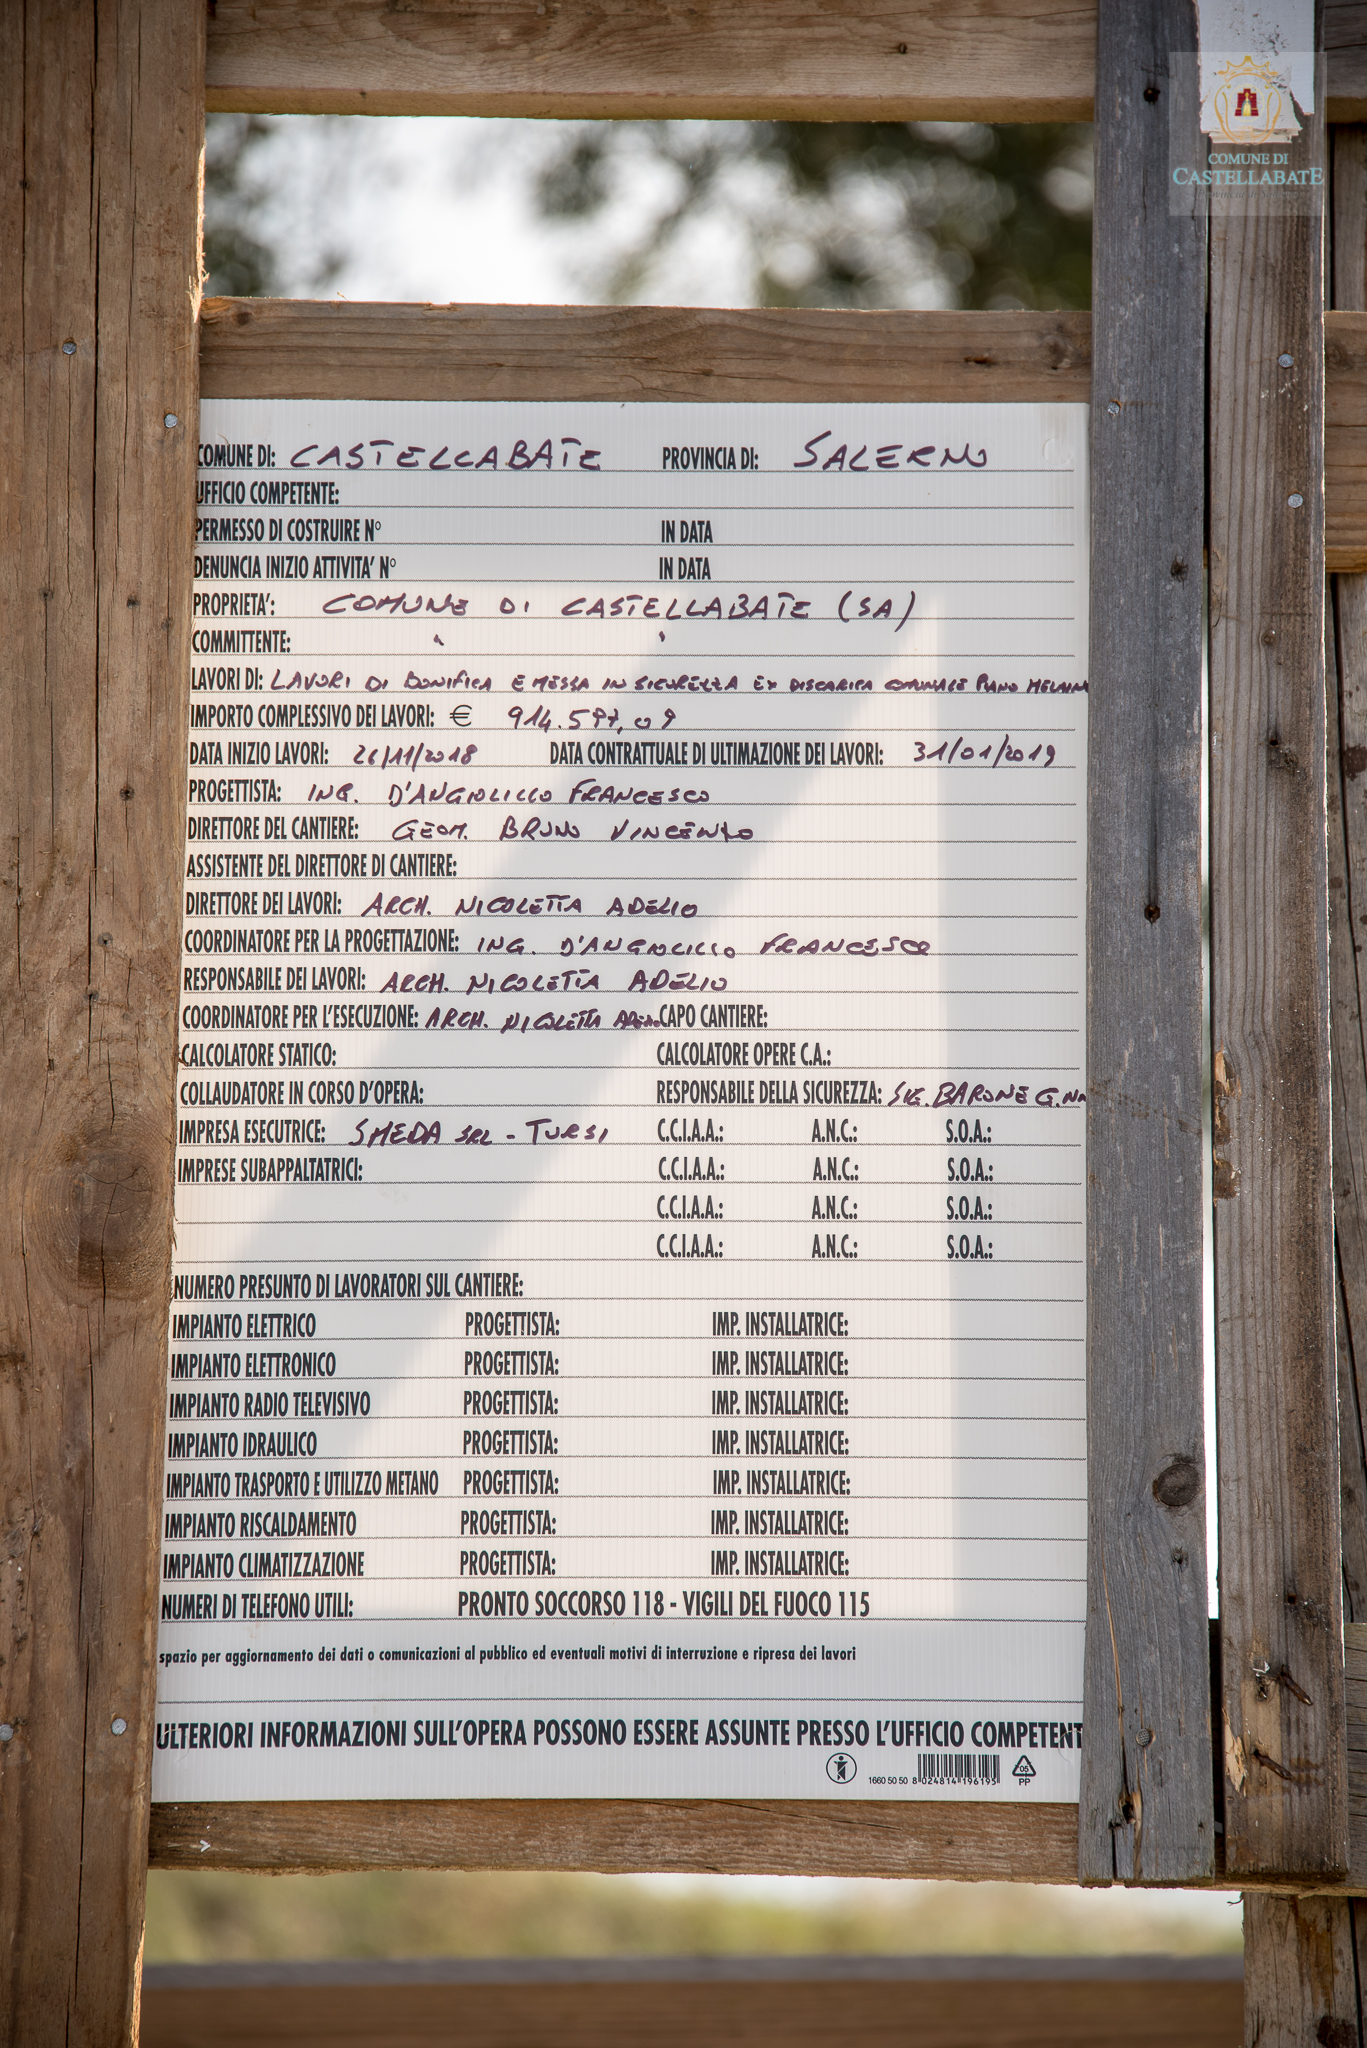 COMUNE DI
CASTELLABATE
COMUNE DI: CASTELLABATE PROVINCIA DI: SALERNO
UFFICIO COMPETENTE:
PERMESSO DI COSTRUIRE N° IN DATA
DENUNCIA INIZIO ATTIVITA' N° IN DATA
PROPRIETA': COMUNE DI CASTELLABATE (SA)
COMMITTENTE:
LAVORI DI: LAVORI DI BONIFICA E MESSA IN SICUREZZA EX DISCARICA COMUNALE PIANO MELAINA
IMPORTO COMPLESSIVO DEI LAVORI: € 914.597,09
DATA INIZIO LAVORI: 26/11/2018 DATA CONTRATTUALE DI ULTIMAZIONE DEI LAVORI: 31/01/2019
PROGETTISTA: ING. D'ANGIOLILLO FRANCESCO
DIRETTORE DEL CANTIERE: GEOM. BRUNO VINCENZO
ASSISTENTE DEL DIRETTORE DI CANTIERE:
DIRETTORE DEI LAVORI: ARCH. NICOLETTA ADELIO
COORDINATORE PER LA PROGETTAZIONE: ING. D'ANGIOLILLO FRANCESCO
RESPONSABILE DEI LAVORI: ARCH. NICOLETTA ADELIO
COORDINATORE PER L'ESECUZIONE: ARCH. NICOLETTA ADELIO CAPO CANTIERE:
CALCOLATORE STATICO: CALCOLATORE OPERE C.A.:
COLLAUDATORE IN CORSO D'OPERA: RESPONSABILE DELLA SICUREZZA: SIG. BARONE
IMPRESA ESECUTRICE: SMEDA SRL - TURSI C.C.I.A.A.: A.N.C.: S.O.A.:
IMPRESE SUBAPPALTATRICI: C.C.I.A.A.: A.N.C.: S.O.A.:
C.C.I.A.A.: A.N.C.: S.O.A.:
C.C.I.A.A.: A.N.C.: S.O.A.:
NUMERO PRESUNTO DI LAVORATORI SUL CANTIERE:
IMPIANTO ELETTRICO PROGETTISTA: IMP. INSTALLATRICE:
IMPIANTO ELETTRONICO PROGETTISTA: IMP. INSTALLATRICE:
IMPIANTO RADIO TELEVISIVO PROGETTISTA: IMP. INSTALLATRICE:
IMPIANTO IDRAULICO PROGETTISTA: IMP. INSTALLATRICE:
IMPIANTO TRASPORTO E UTILIZZO METANO PROGETTISTA: IMP. INSTALLATRICE:
IMPIANTO RISCALDAMENTO PROGETTISTA: IMP. INSTALLATRICE:
IMPIANTO CLIMATIZZAZIONE PROGETTISTA: IMP. INSTALLATRICE:
NUMERI DI TELEFONO UTILI: PRONTO SOCCORSO 118 - VIGILI DEL FUOCO 115
spazio per aggiornamento dei dati o comunicazioni al pubblico ed eventuali motivi di interruzione e ripresa dei lavori
ULTERIORI INFORMAZIONI SULL'OPERA POSSONO ESSERE ASSUNTE PRESSO L'UFFICIO COMPETENT
1660 50 50 8 024814 196195 05
PP